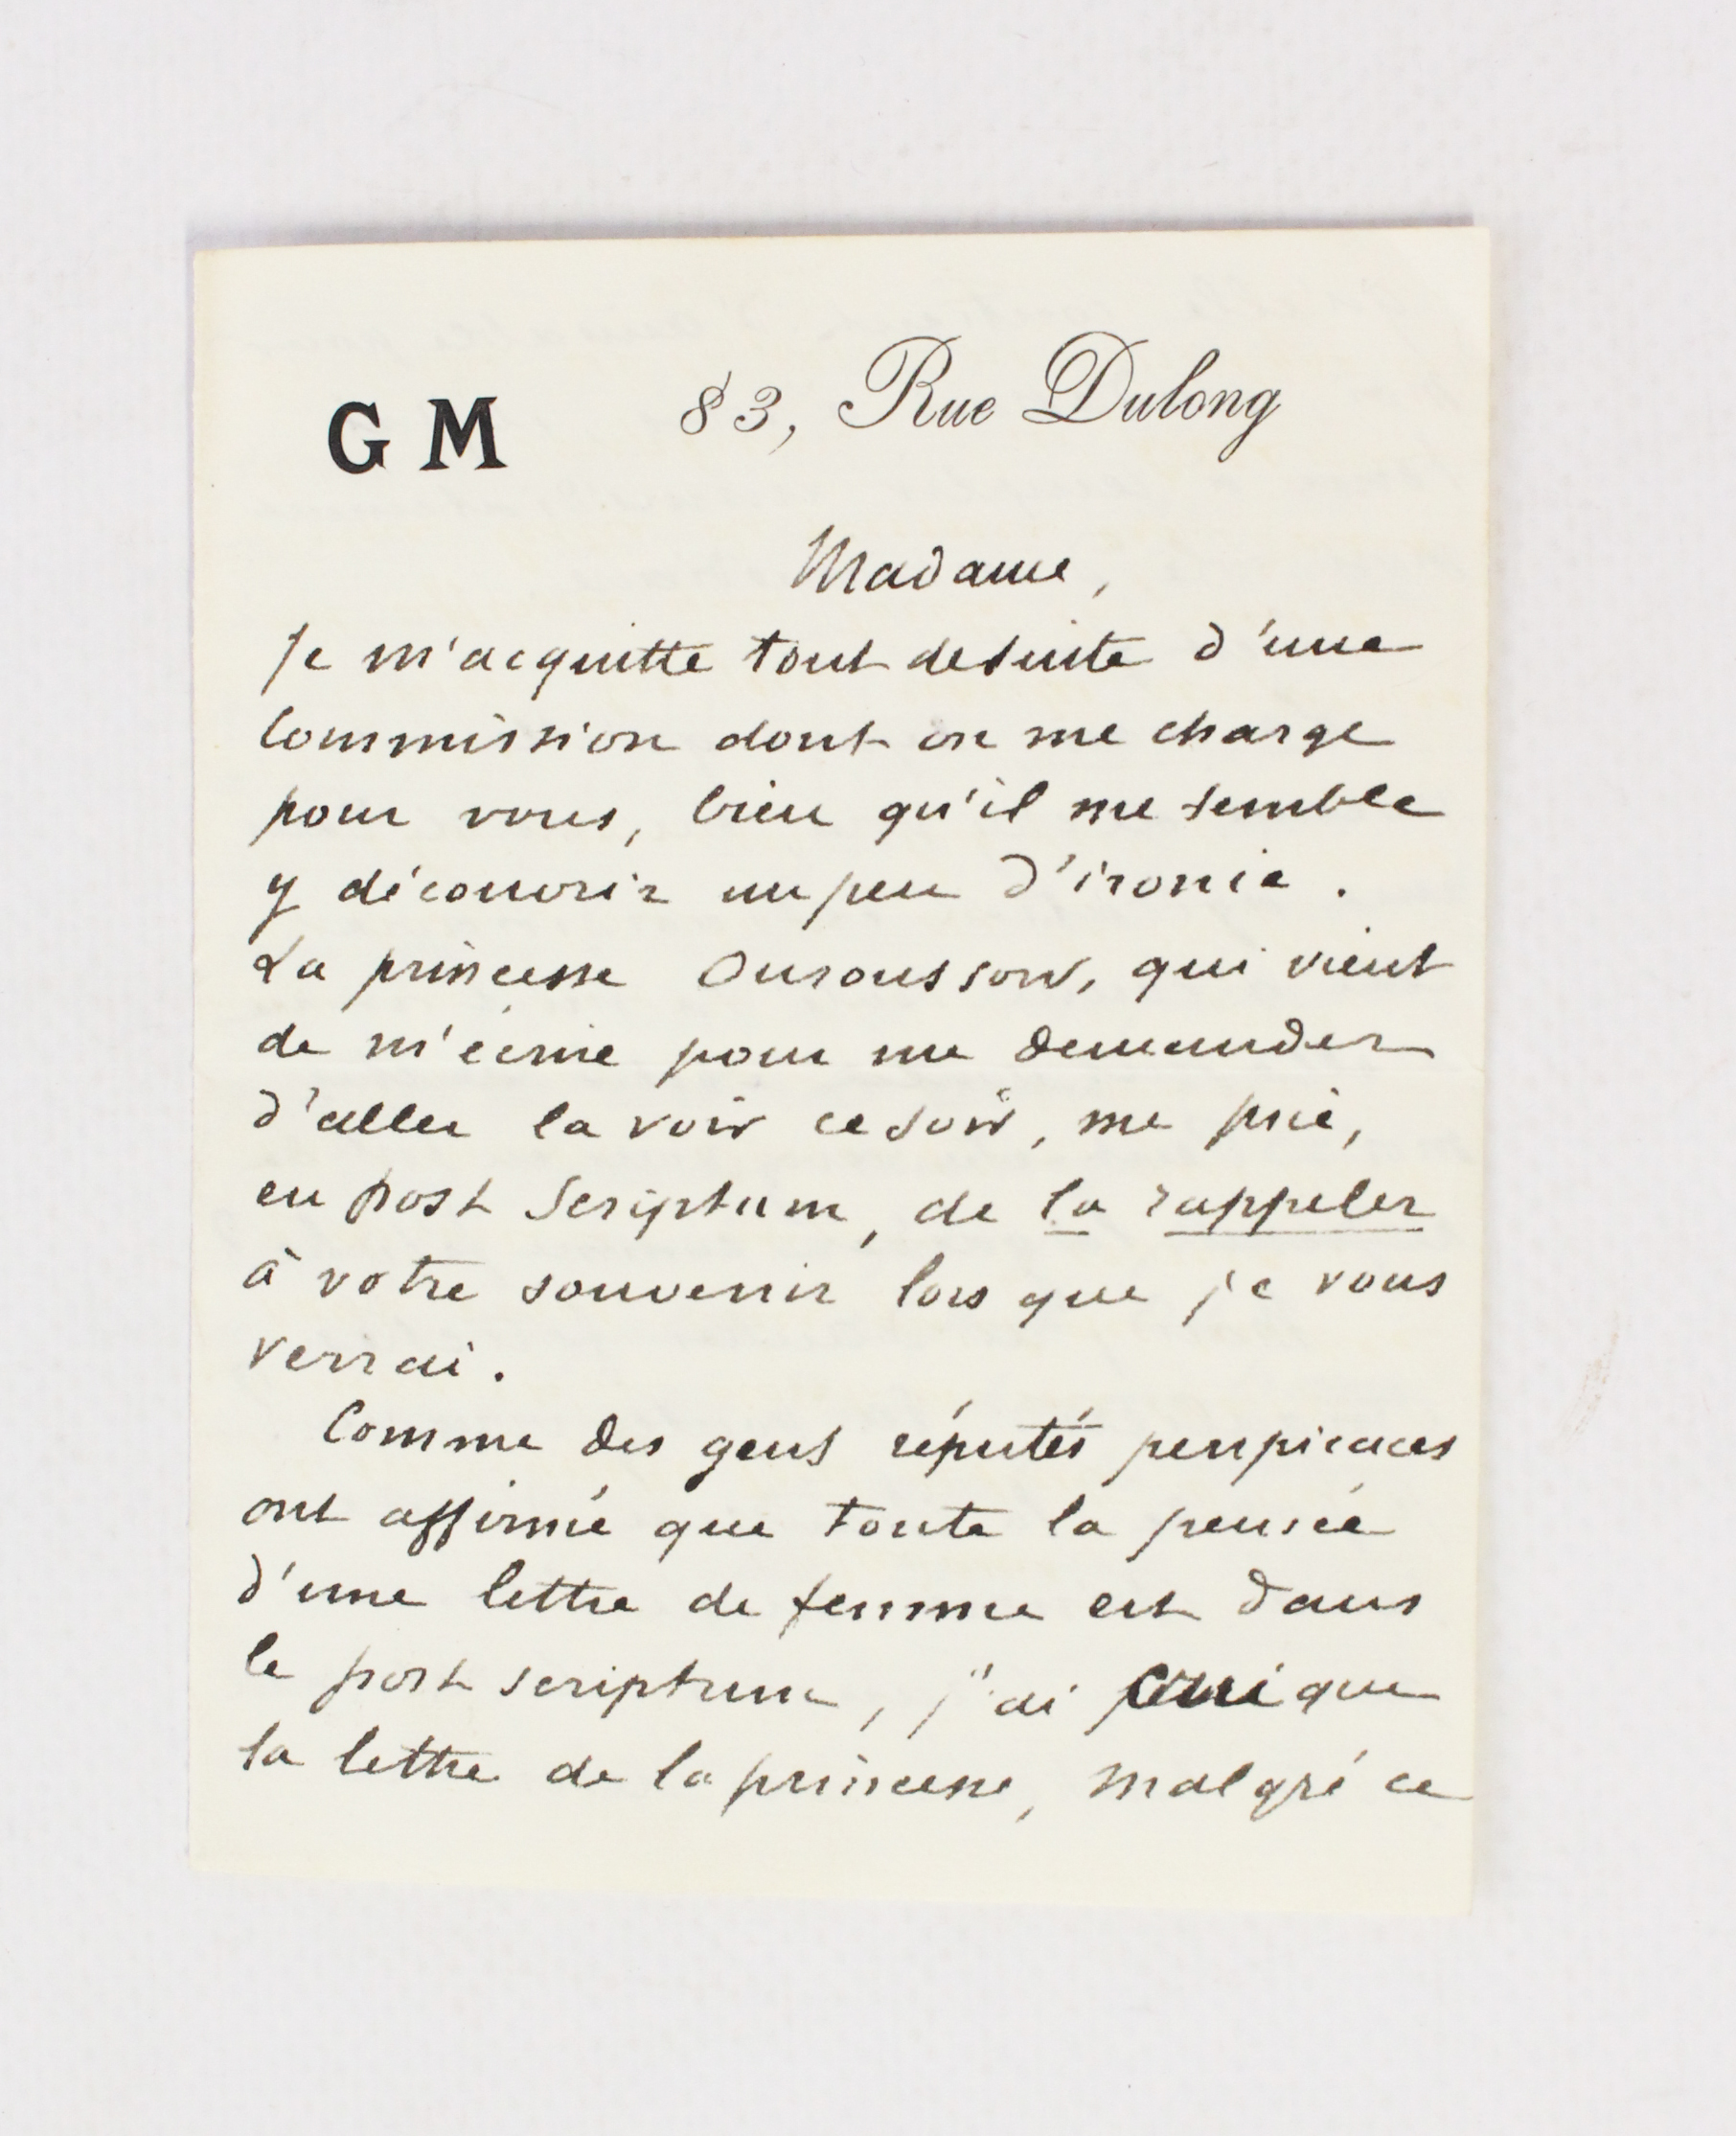 G M 83, Rue Dulong
Madame,
Je m'acquitte tout desuite d'une
Commission dont on me charge
pour vous, bien qu'il me semble
y découvrir un peu d'ironie.
La princesse Ouroussow, qui vient
de m'écrire pour me demander
d'aller la voir ce soir, me prie,
en post Scriptum, de la rappeler
à votre souvenir lors que je vous
verrai.
Comme des gens réputés perspicaces
ont affirmé que toute la pensée
d'une lettre de femme est dans
le post scriptum, j'ai que
la lettre de la princesse, malgré ce